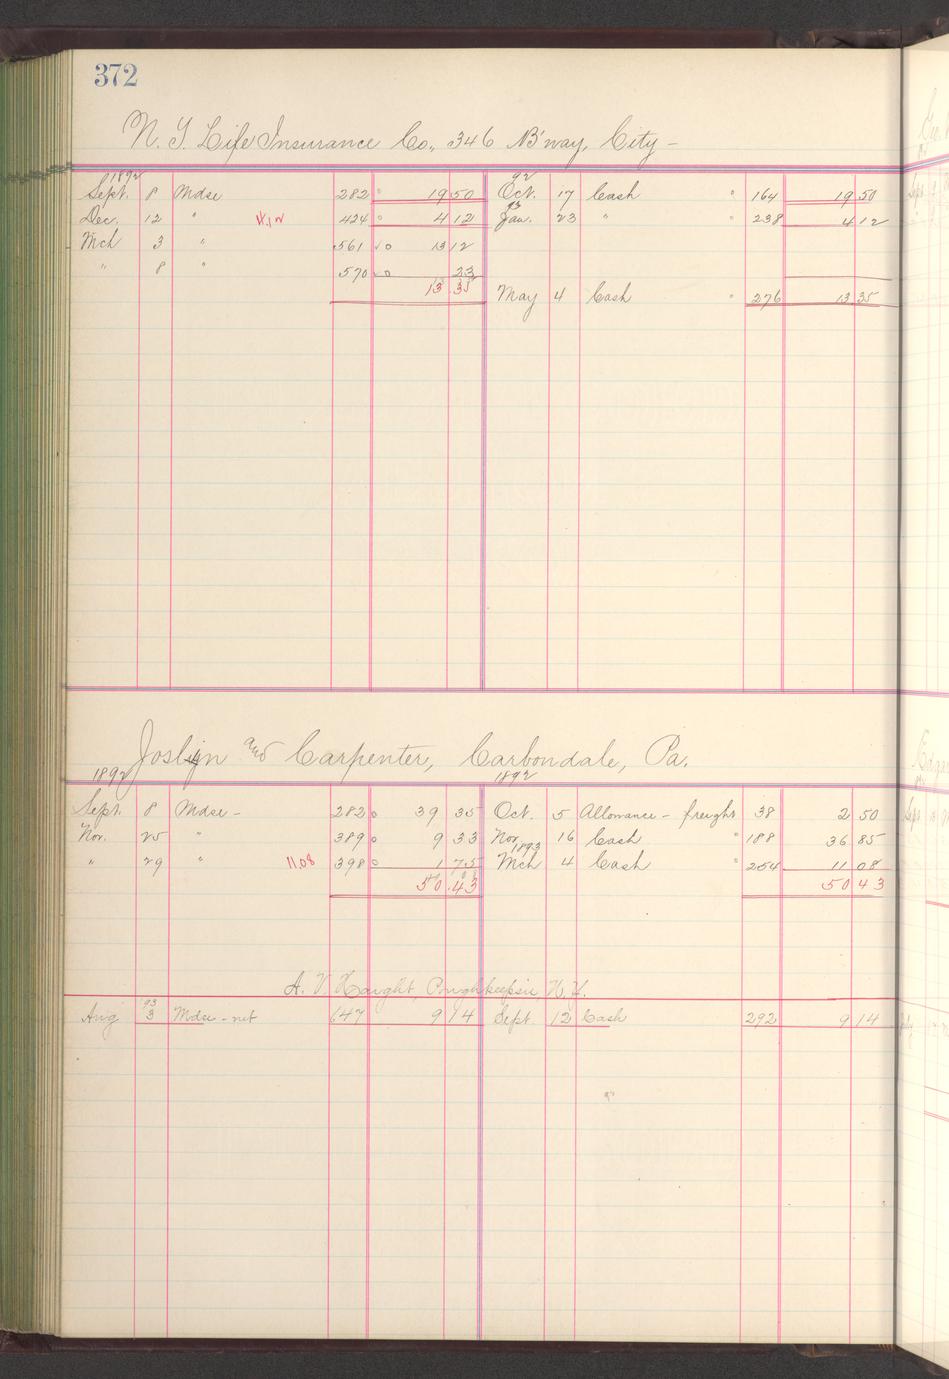 372
N. Y. Life Insurance Co., 346 B'way, City -
1892 92
Sept. 8 Mdse 282 19 50 Oct. 17 Cash " 164 19 50
93
Dec. 12 " 4.12 424 4 12 Jan. 23 " " 238 4 12
Mch 3 " 561 13 12
" 8 " 570 23
13 35
May 4 Cash " 276 13 35
Joslyn and Carpenter, Carbondale, Pa.
1892 1892
Sept. 8 Mdse - 282 39 35 Oct. 5 Allowance - freight 38 2 50
Nov. 25 " 389 9 33 Nov. 16 Cash " 188 36 85
1893
" 29 " 11.08 398 1 75 Mch 4 Cash " 254 11 08
50.43 50 43
A. V. Haight, Poughkeepsie, N.Y.
93
Aug 3 Mdse - net 647 9 14 Sept. 12 Cash 292 9 14